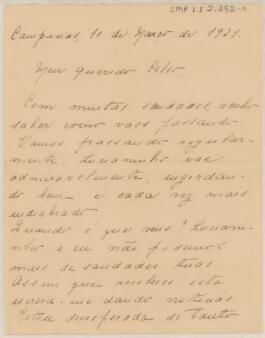 CMP 1.1.2.252-1
Campinas, 10 de Março de 1921.
Meu querido Celso,
Com muitas saudades, venho
saber como vaes passando.
Vamos passando regular-
mente. Lucianinho vae
admiravelmente, engordan-
do bem e cada vez mais
endiabrado.
Quando é que vens? Luciani-
nho e eu não podemos
mais de saudades tuas.
Assim que receberes esta
escreva-me dando noticias.
Estou desesperada de tanto